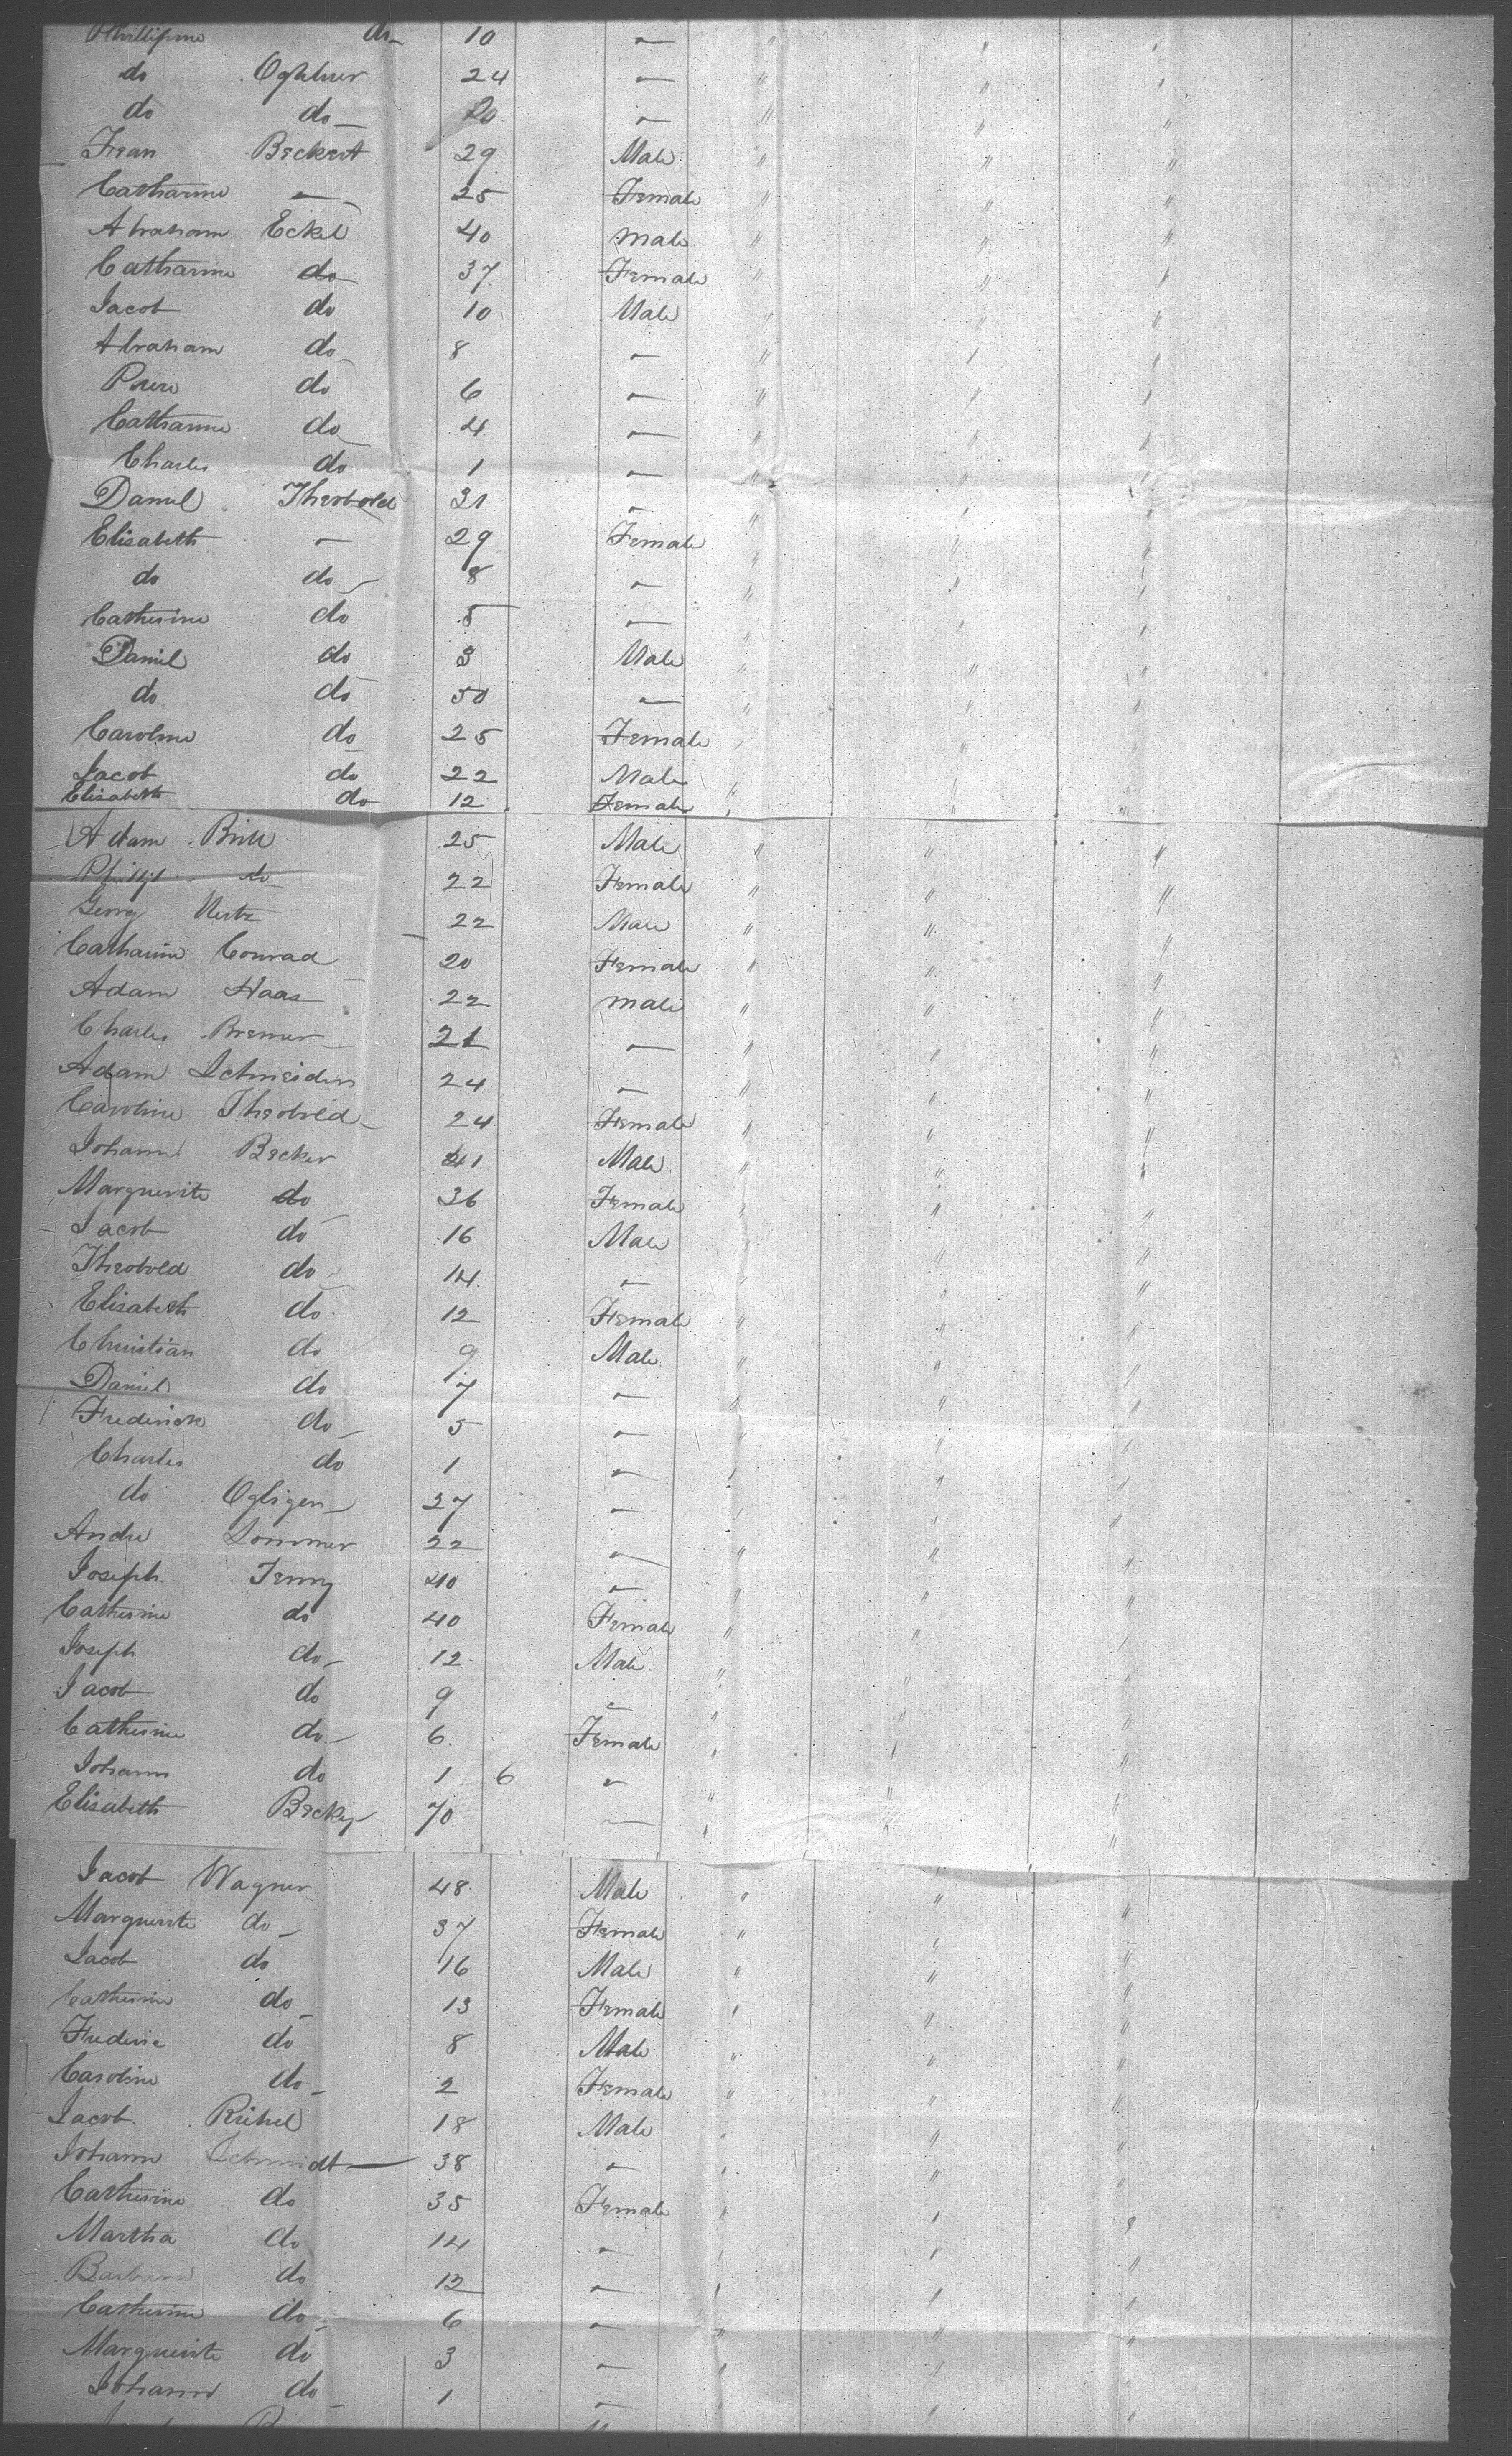 Phillipine do 10 — " " "
do 24 — " " "
do do 20 — " " "
Jean Beckert 29 Male " " "
Catharine — 25 Female " " "
Abraham Eckel 40 male " " "
Catharine do 37 Female " " "
Jacob do 10 Male " " "
Abraham do 8 — " " "
do 6 — " " "
Catharine do 4 — " " "
Charles do 1 — " " "
Daniel Theobold 31 — " " "
Elisabeth — 29 Female " " "
do do 8 — " " "
Catherine do 5 — " " "
Daniel do 3 Male " " "
do do 50 — " " "
Caroline do 25 Female " " "
Jacob do 22 Male " " "
Elisabeth do 12 Female " " "
Adam 25 Male " " "
do 22 Female " " "
Georg 22 Male " " "
Catharine Conrad 20 Female " " "
Adam Haas 22 male " " "
Charles Bremer 21 — " " "
Adam Schneider 24 — " " "
Caroline Theobold 24 Female " " "
Johann Becker 41 Male " " "
Marguerite do 36 Female " " "
Jacob do 16 Male " " "
Theobold do 14 — " " "
Elisabeth do 12 Female " " "
Christian do 9 Male " " "
Daniel do 7 — " " "
Frederick do 5 — " " "
Charles do 1 — " " "
do 27 — " " "
Andre Sommer 22 — " " "
Joseph Jenny 40 — " " "
Catherine do 40 Female " " "
Joseph do 12 Male " " "
Jacob do 9 — " " "
Catherine do 6 Female " " "
Johann do 1 6 — " " "
Elisabeth Becker 70 — " " "
Jacob Wagner 48 Male " " "
Marguerite do 37 Female " " "
Jacob do 16 Male " " "
Catherine do 13 Female " " "
Frederic do 8 Male " " "
Caroline do 2 Female " " "
Jacob 18 Male " " "
Johann Schmidt 38 — " " "
Catherine do 35 Female " " "
Martha do 14 — " " "
Barbara do 12 — " " "
Catherine do 6 — " " "
Marguerite do 3 — " " "
Johann do 1 — " " "